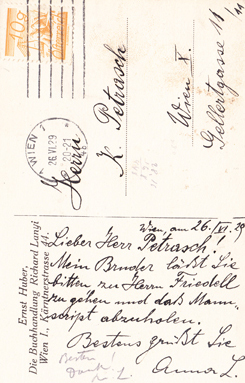 WIEN
26.VI.29
20-21
Herrn
K. Petrasch
Wien X.
Gellertgasse 11
Ernst Huber,
Die Buchhandlung Richard Lanyi
Wien I., Kärntnerstrasse 44.
Wien, am 26./VI. 29
Lieber Herr Petrasch!
Mein Bruder läßt Sie
bitten zu Herrn Friedell
zu gehen und das Manu-
script abzuholen.
Bestens grüßt Sie
Anna L.
Besten
Dank!